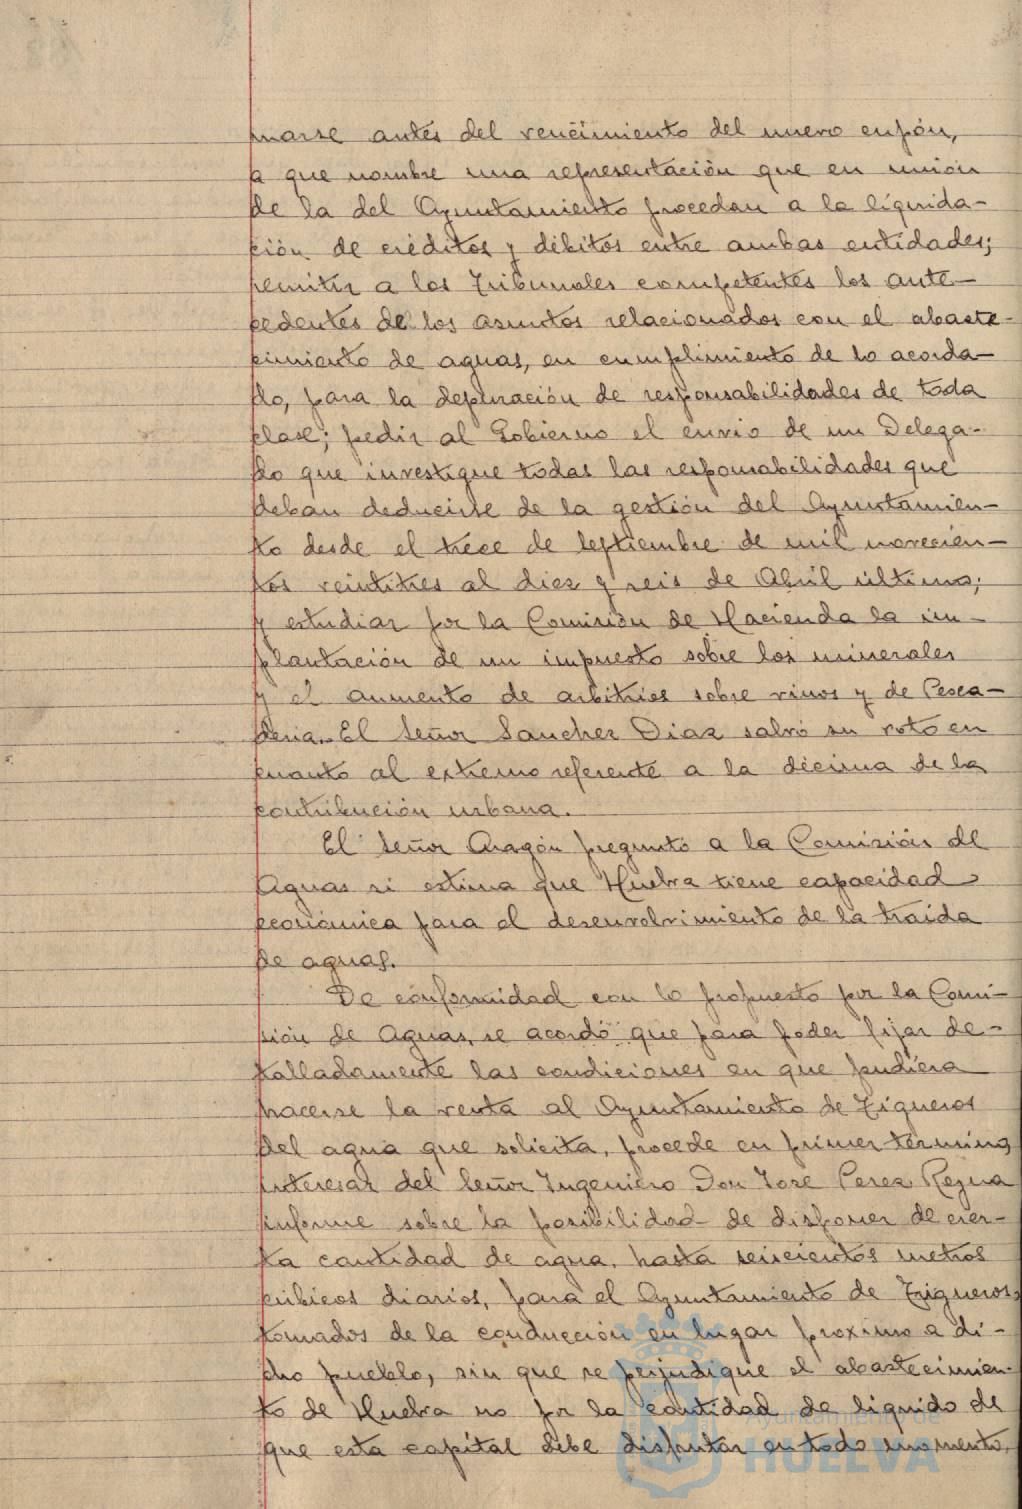 marse antes del vencimiento del nuevo cupón,
a que nombre una representación que en unión
de la del Ayuntamiento procedan a la liquida-
ción de créditos y débitos entre ambas entidades;
remitir a los Tribunales competentes los ante-
cedentes de los asuntos relacionados con el abaste-
cimiento de aguas, en cumplimiento de lo acorda-
do, para la depuración de responsabilidades de toda
clase; pedir al Gobierno el envio de un Delega-
do que investigue todas las responsabilidades que
deban deducirse de la gestión del Ayuntamien-
to desde el trece de Septiembre de mil novecien-
tos veintitres al diez y seis de Abril último;
y estudiar por la Comisión de Hacienda la im-
plantación de un impuesto sobre los minerales
y el aumento de arbitrios sobre vinos y de Pesca-
deria. El Señor Sanchez Diaz salvó su voto en
cuanto al extremo referente a la décima de la
contribución urbana.
El Señor Aragón preguntó a la Comisión de
Aguas si estima que Huelva tiene capacidad
económica para el desenvolvimiento de la traida
de aguas.
De conformidad con lo propuesto por la Comi-
sión de Aguas, se acordó que para poder fijar de-
talladamente las condiciones en que pudiera
hacerse la venta al Ayuntamiento de Tigueros
del agua que solicita, procede en primer término
interesar del Señor Ingeniero Don José Perez Reyna
informe sobre la posibilidad de disponer de cier-
ta cantidad de agua, hasta seiscientos metros
cúbicos diarios, para el Ayuntamiento de Trigueros,
tomados de la conducción en lugar proximo a di-
cho pueblo, sin que se perjudique el abastecimien-
to de Huelva no por la cantidad de liquido de
que esta capital debe disfrutar en todo momento,
Ayuntamiento de
HUELVA